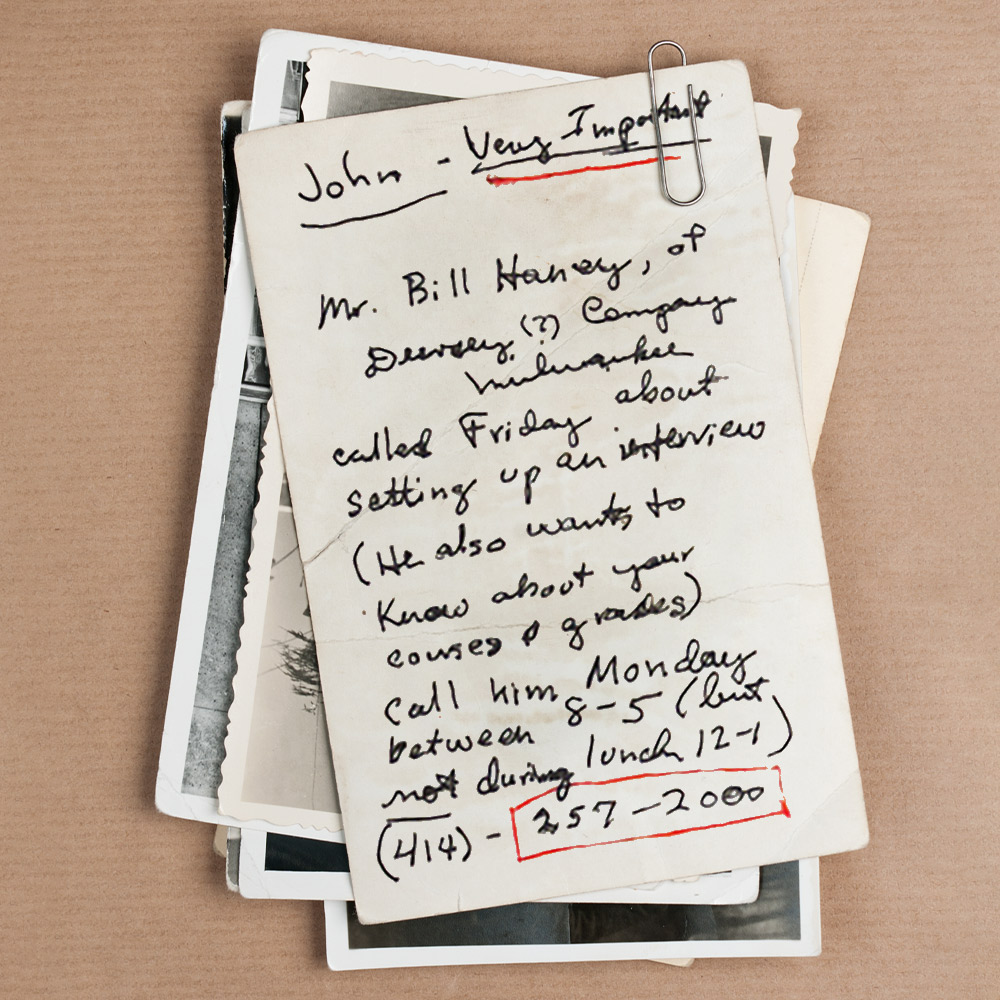 John - Very Important
Mr. Bill Haney, of
(?) Company
Milwaukee
called Friday about
setting up an interview
(He also wants to
Know about your
courses & grades)
call him Monday
between 8-5 (but
not during lunch 12-1)
(414) - 257-2000